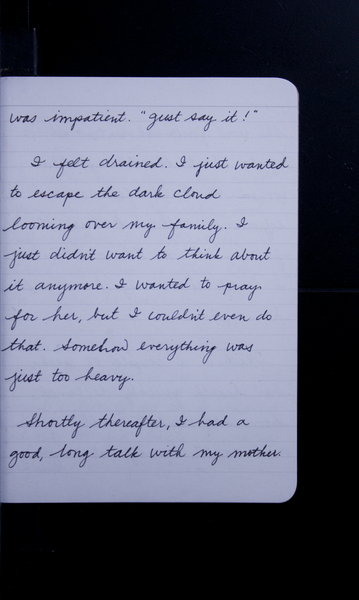 was impatient. "Just say it!"
I felt drained. I just wanted
to escape the dark cloud
looming over my family. I
just didn't want to think about
it anymore. I wanted to pray
for her, but I couldn't even do
that. Somehow everything was
just too heavy.
Shortly thereafter, I had a
good, long talk with my mother.